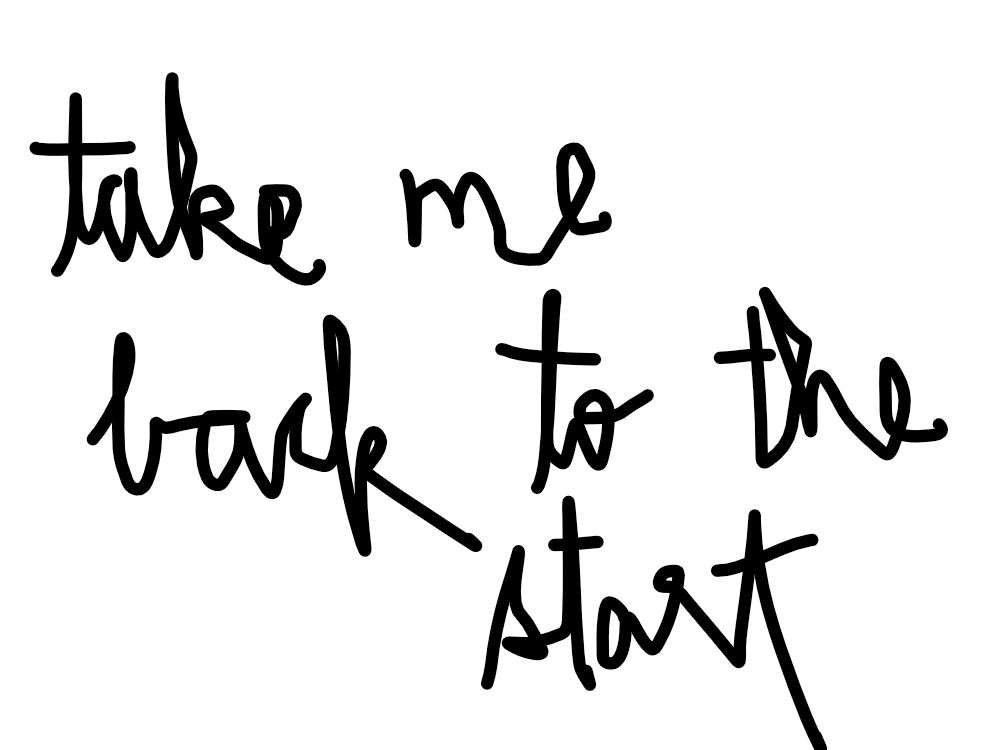 take me
back to the
start